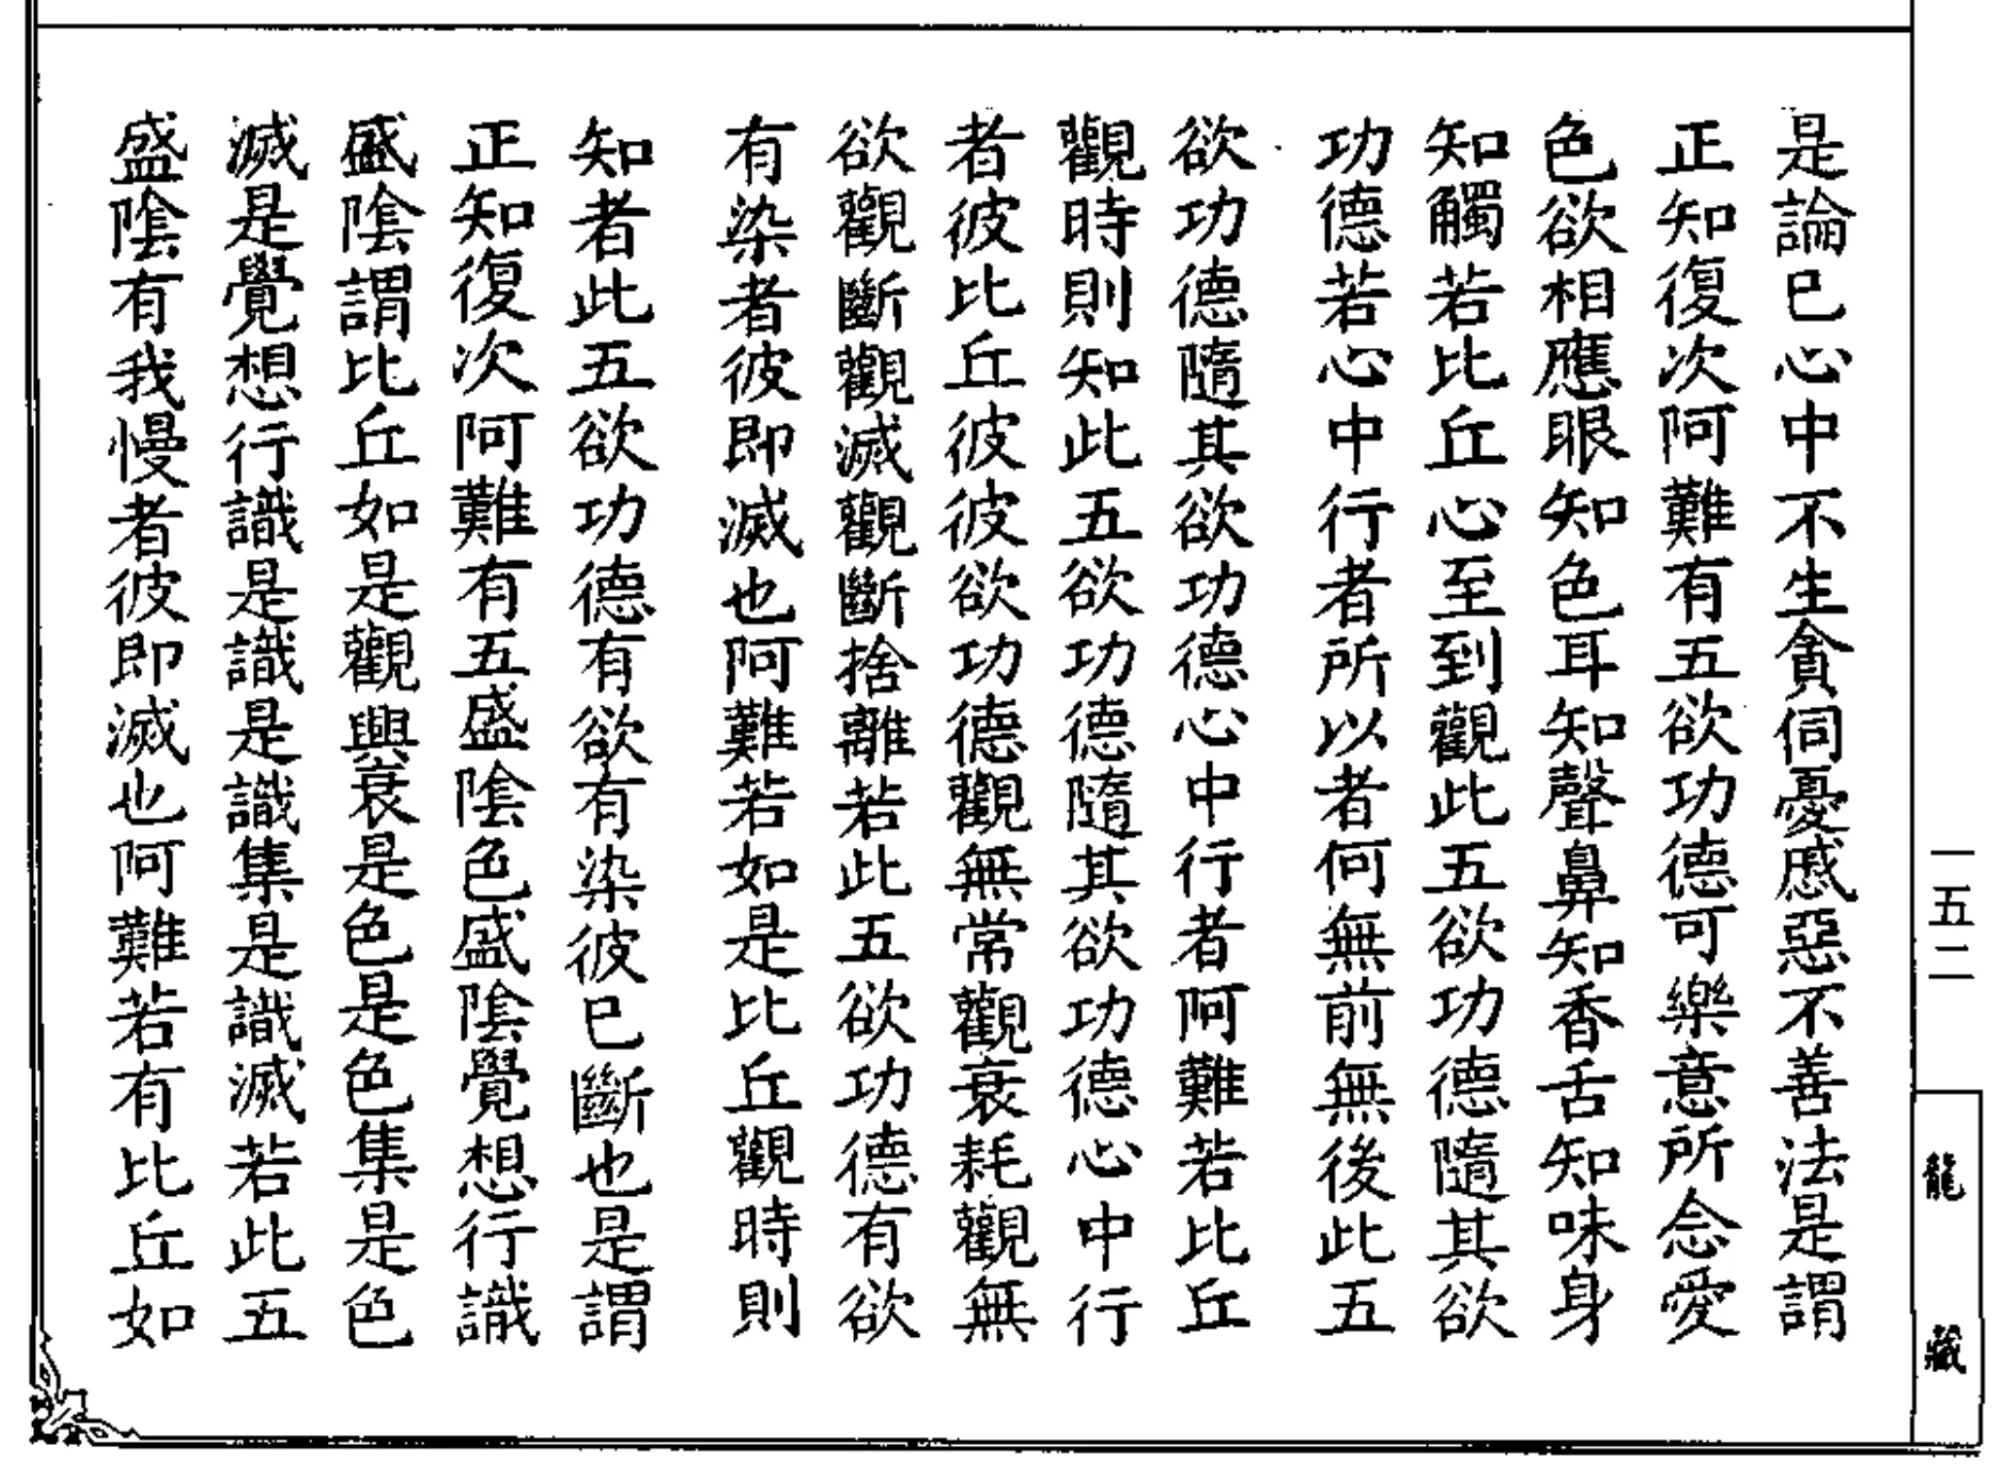 是論已心中不生貪伺憂慼惡不善法是謂
正知復次阿難有五欲功德可樂意所念愛
色欲相應眼知色耳知聲鼻知香舌知味身
知觸若比丘心至到觀此五欲功德隨其欲
功德若心中行者所以者何無前無後此五
欲功德隨其欲功德心中行者阿難若比丘
觀時則知此五欲功德隨其欲功德心中行
者彼比丘彼彼欲功德觀無常觀衰耗觀無
欲觀斷觀滅觀斷捨離若此五欲功德有欲
有染者彼即滅也阿難若如是比丘觀時則
知者此五欲功德有欲有染彼已斷也是謂
正知復次阿難有五盛陰色盛陰覺想行識
盛陰謂比丘如是觀興衰是色是色集是色
滅是覺想行識是識是識集是識滅若此五
盛陰有我慢者彼即滅也阿難若有比丘如
一五二
龍藏